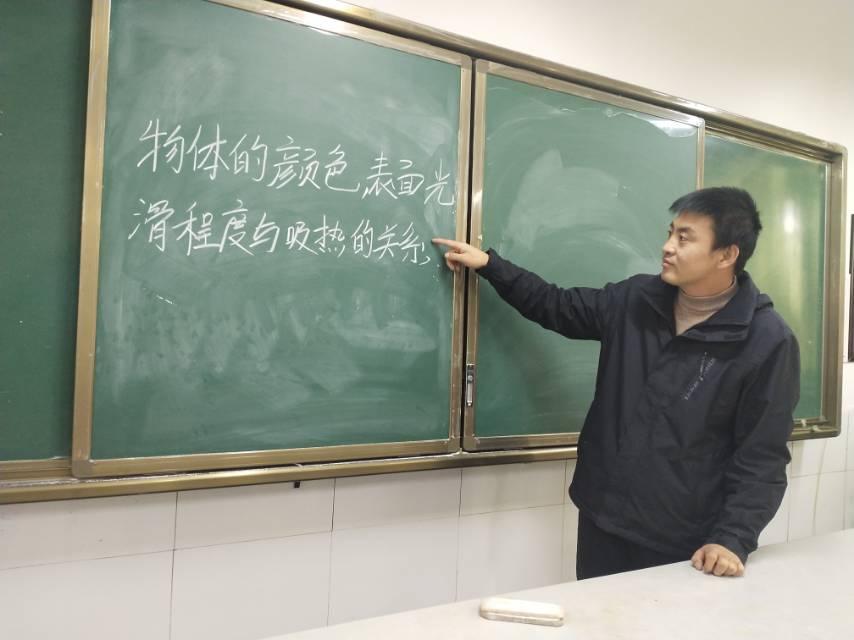 物体的颜色,表面光
滑程度与吸热的关系